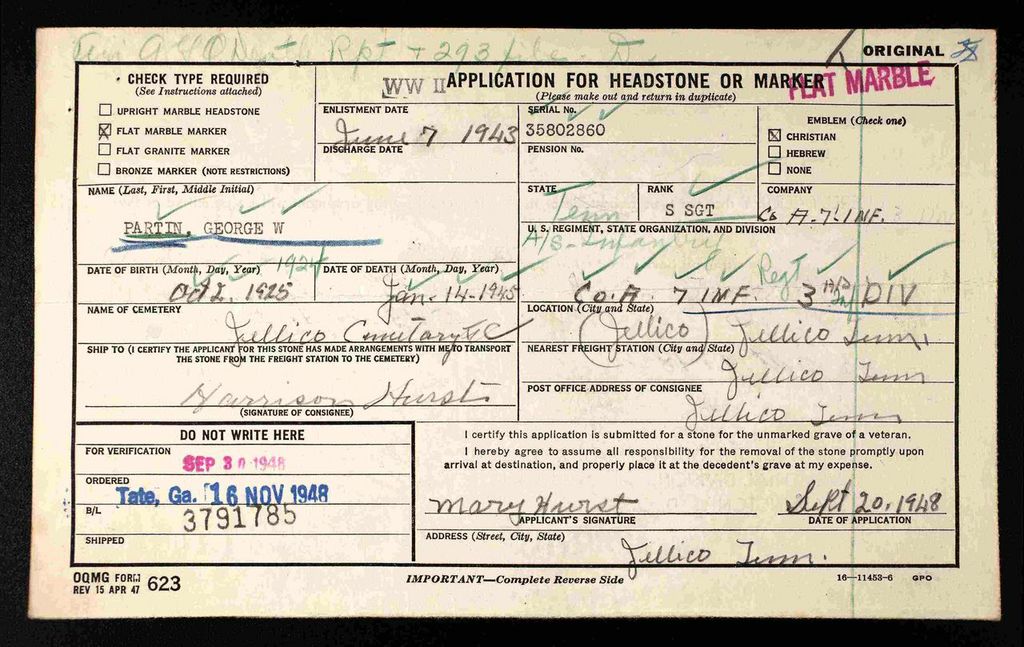 Rpt + 293 file
ORIGINAL
CHECK TYPE REQUIRED
(See Instructions attached)
UPRIGHT MARBLE HEADSTONE
FLAT MARBLE MARKER
FLAT GRANITE MARKER
BRONZE MARKER (NOTE RESTRICTIONS)
WW II APPLICATION FOR HEADSTONE OR MARKER
(Please make out and return in duplicate)
FLAT MARBLE
ENLISTMENT DATE
June 7 1943
DISCHARGE DATE
SERIAL No.
35802860
PENSION No.
EMBLEM (Check one)
CHRISTIAN
HEBREW
NONE
NAME (Last, First, Middle Initial)
PARTIN, GEORGE W
STATE
Tenn
RANK
S SGT
COMPANY
Co A-7 INF.
U. S. REGIMENT, STATE ORGANIZATION, AND DIVISION
A/S-Infantry
Co. A. 7 INF. Regt 3 Inf DIV
DATE OF BIRTH (Month, Day, Year) 1924
Oct 2, 1925
DATE OF DEATH (Month, Day, Year)
Jan. 14-1945
NAME OF CEMETERY
Jellico Cemetary
LOCATION (City and State)
(Jellico) Jellico Tenn.
SHIP TO (I CERTIFY THE APPLICANT FOR THIS STONE HAS MADE ARRANGEMENTS WITH ME TO TRANSPORT
THE STONE FROM THE FREIGHT STATION TO THE CEMETERY)
Harrison Hurst
(SIGNATURE OF CONSIGNEE)
NEAREST FREIGHT STATION (City and State)
Jellico Tenn
POST OFFICE ADDRESS OF CONSIGNEE
Jellico Tenn
DO NOT WRITE HERE
FOR VERIFICATION
SEP 30 1948
ORDERED
Tate, Ga. 16 NOV 1948
B/L
3791785
SHIPPED
I certify this application is submitted for a stone for the unmarked grave of a veteran.
I hereby agree to assume all responsibility for the removal of the stone promptly upon
arrival at destination, and properly place it at the decedent's grave at my expense.
Mary Hurst
APPLICANT'S SIGNATURE
Sept 20, 1948
DATE OF APPLICATION
ADDRESS (Street, City, State)
Jellico Tenn.
OQMG FORM 623
REV 15 APR 47
IMPORTANT—Complete Reverse Side
16—11453-6 GPO